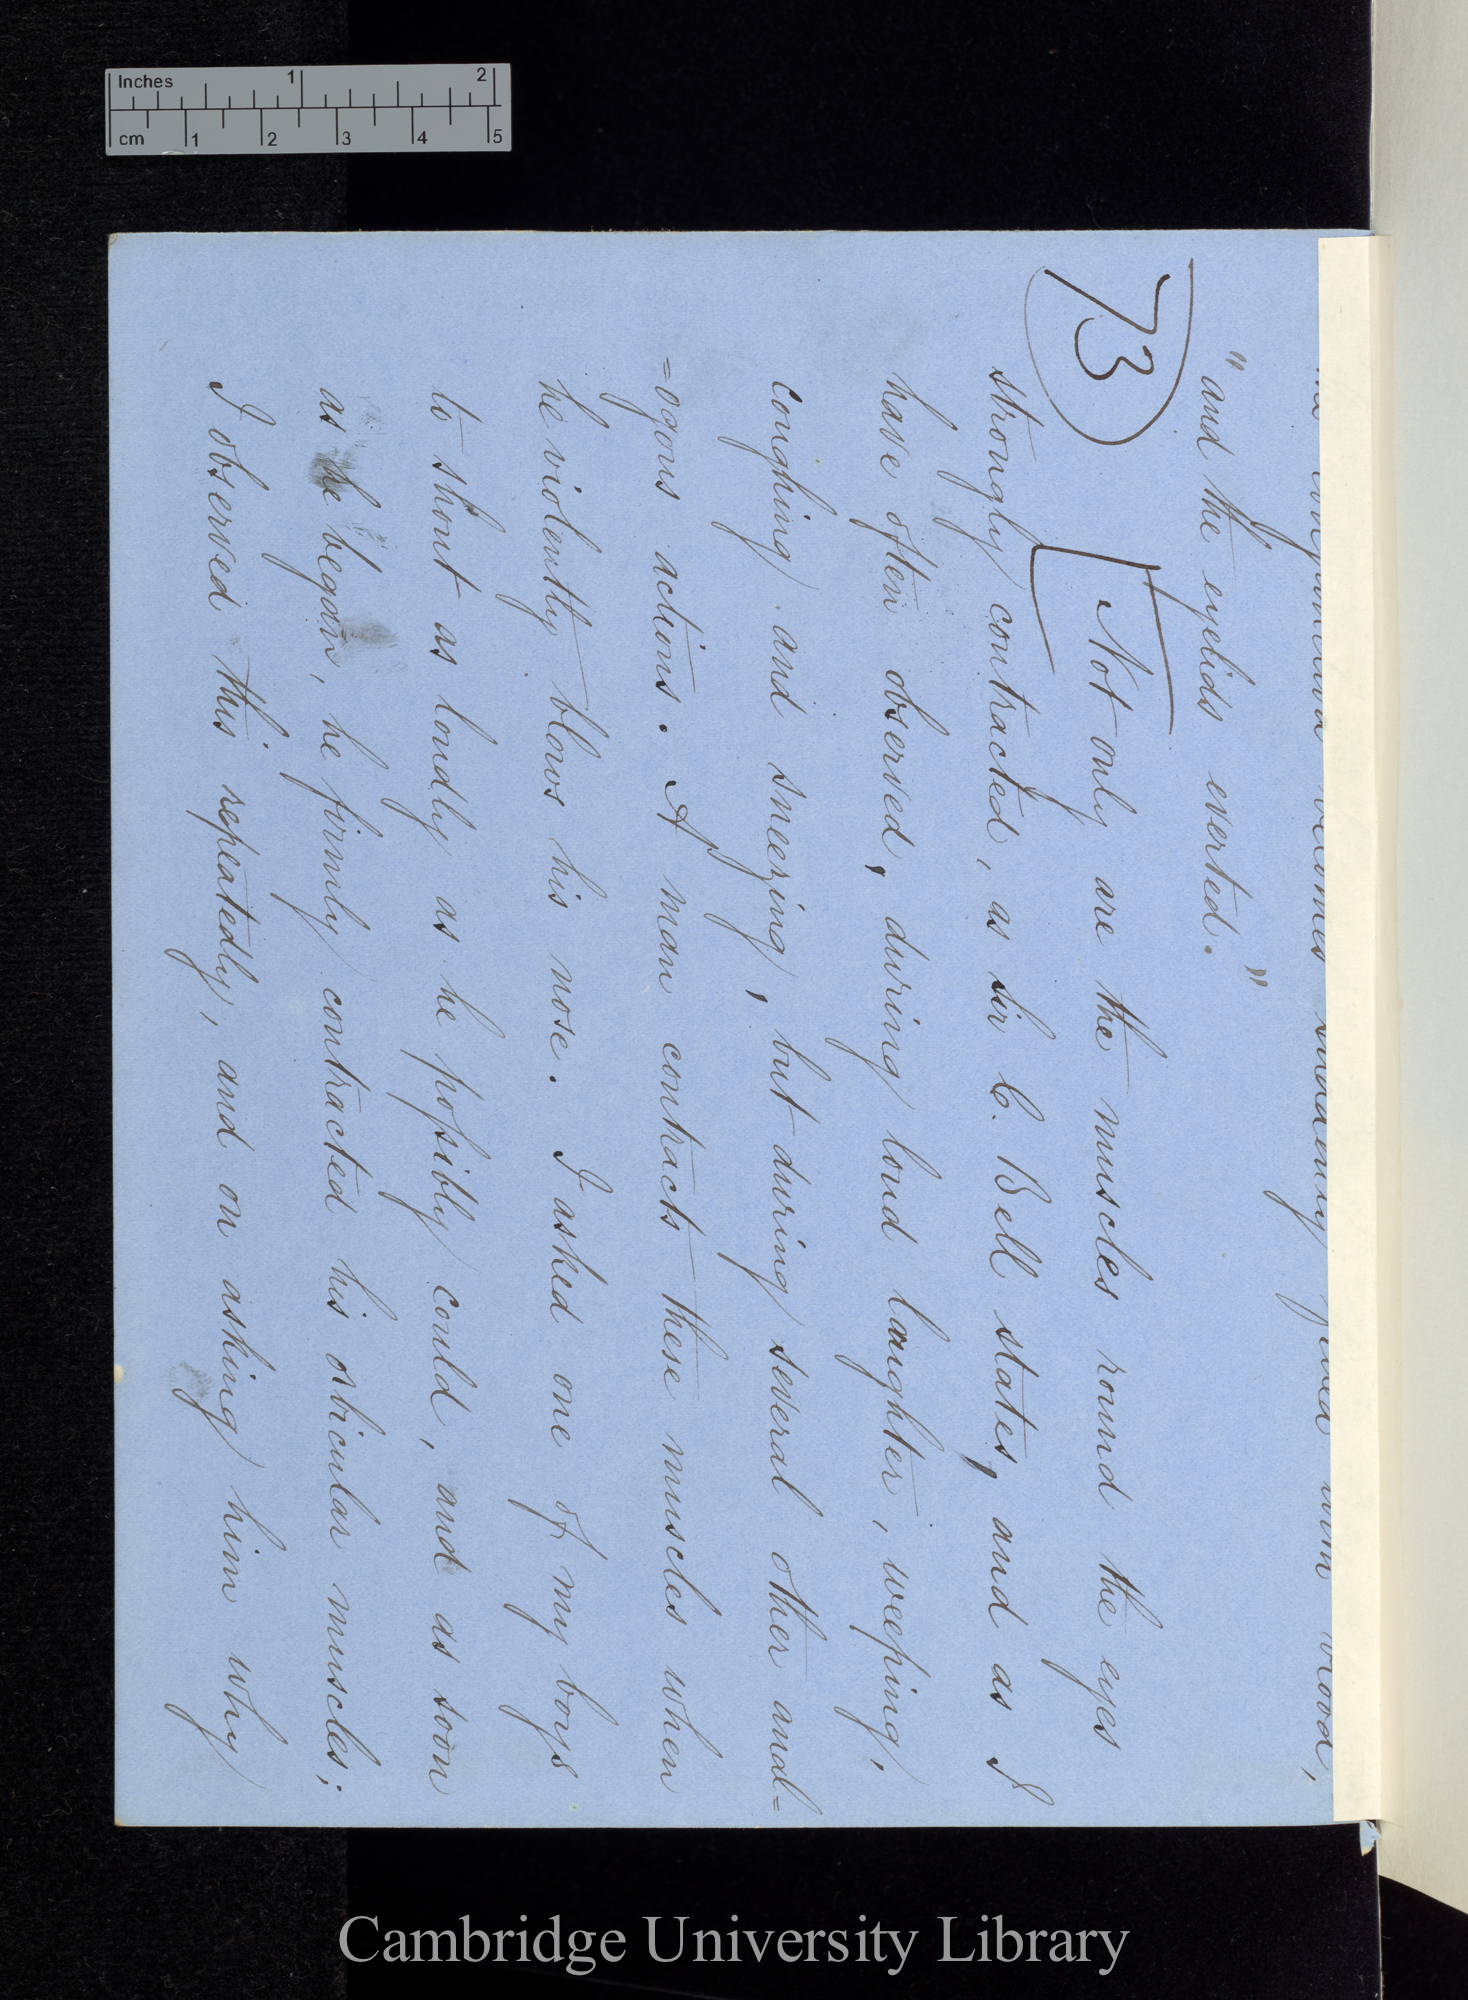 Inches 1 2
cm 1 2 3 4 5
becomes suddenly filled with blood,
"and the eyelids everted."
73
Not only are the muscles round the eyes
strongly contracted, as Sir C. Bell states, and as I
have often observed, during loud laughter, weeping,
coughing and sneezing, but during several other anal=
=ogous actions. A man contracts these muscles when
he violently blows his nose. I asked one of my boys
to shout as loudly as he possibly could, and as soon
as he began, he firmly contracted his orbicular muscles;
I observed this repeatedly, and on asking him why
Cambridge University Library